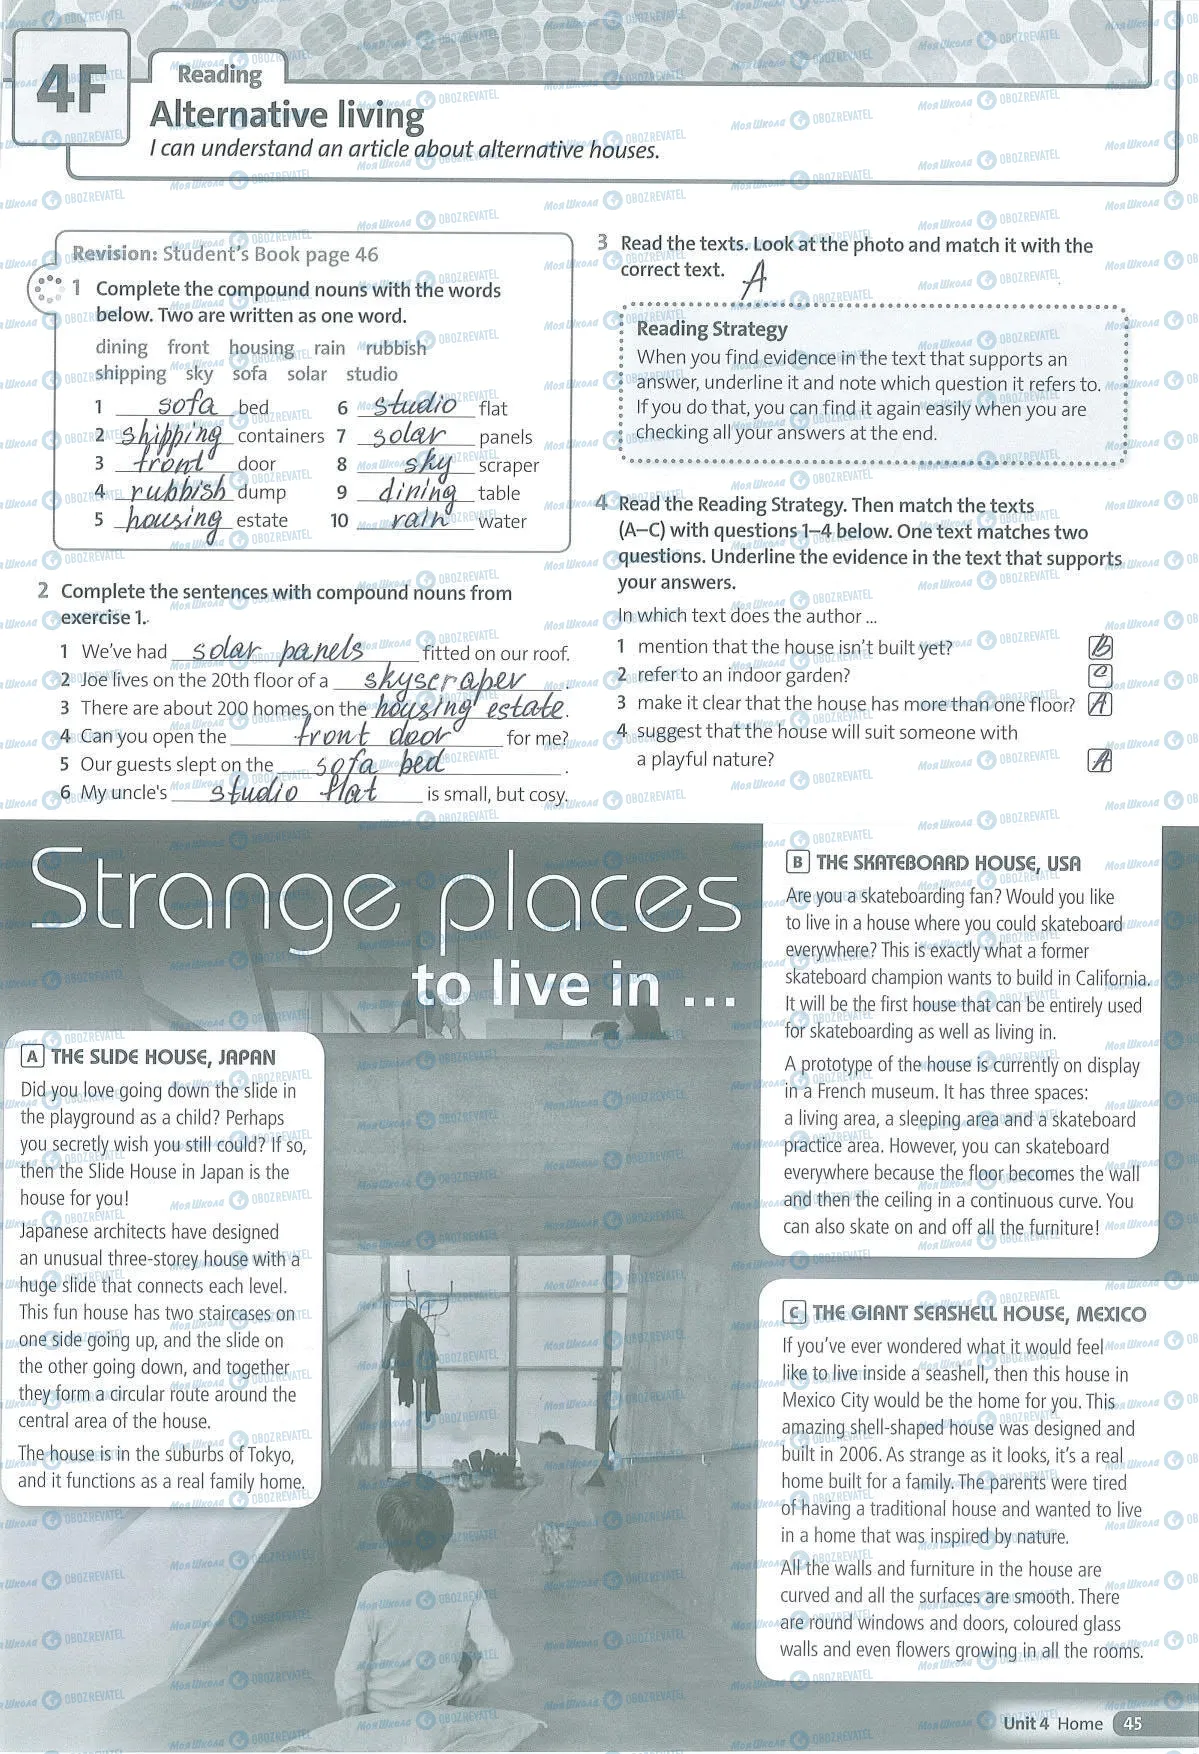 4F
Reading
Alternative living
I can understand an article about alternative houses.
Revision: Student's Book page 46
1 Complete the compound nouns with the words
below. Two are written as one word.
dining front housing rain rubbish
shipping sky sofa solar studio
1 sofa bed
2 shipping containers
3 front door
4 rubbish dump
5 housing estate
6 studio flat
7 solar panels
8 sky scraper
9 dining table
10 rain water
2 Complete the sentences with compound nouns from
exercise 1.
1 We've had solar panels fitted on our roof.
2 Joe lives on the 20th floor of a skyscraper.
3 There are about 200 homes on the housing estate.
4 Can you open the front door for me?
5 Our guests slept on the sofa bed.
6 My uncle's studio flat is small, but cosy.
3 Read the texts. Look at the photo and match it with the
correct text. A
Reading Strategy
When you find evidence in the text that supports an
answer, underline it and note which question it refers to.
If you do that, you can find it again easily when you are
checking all your answers at the end.
4 Read the Reading Strategy. Then match the texts
(A–C) with questions 1–4 below. One text matches two
questions. Underline the evidence in the text that supports
your answers.
In which text does the author ...
1 mention that the house isn't built yet? B
2 refer to an indoor garden? C
3 make it clear that the house has more than one floor? A
4 suggest that the house will suit someone with
a playful nature? A
Strange places
to live in ...
A THE SLIDE HOUSE, JAPAN
Did you love going down the slide in
the playground as a child? Perhaps
you secretly wish you still could? If so,
then the Slide House in Japan is the
house for you!
Japanese architects have designed
an unusual three-storey house with a
huge slide that connects each level.
This fun house has two staircases on
one side going up, and the slide on
the other going down, and together
they form a circular route around the
central area of the house.
The house is in the suburbs of Tokyo,
and it functions as a real family home.
B THE SKATEBOARD HOUSE, USA
Are you a skateboarding fan? Would you like
to live in a house where you could skateboard
everywhere? This is exactly what a former
skateboard champion wants to build in California.
It will be the first house that can be entirely used
for skateboarding as well as living in.
A prototype of the house is currently on display
in a French museum. It has three spaces:
a living area, a sleeping area and a skateboard
practice area. However, you can skateboard
everywhere because the floor becomes the wall
and then the ceiling in a continuous curve. You
can also skate on and off all the furniture!
C THE GIANT SEASHELL HOUSE, MEXICO
If you've ever wondered what it would feel
like to live inside a seashell, then this house in
Mexico City would be the home for you. This
amazing shell-shaped house was designed and
built in 2006. As strange as it looks, it's a real
home built for a family. The parents were tired
of having a traditional house and wanted to live
in a home that was inspired by nature.
All the walls and furniture in the house are
curved and all the surfaces are smooth. There
are round windows and doors, coloured glass
walls and even flowers growing in all the rooms.
Unit 4 Home 45
МояШкола OBOZREVATEL